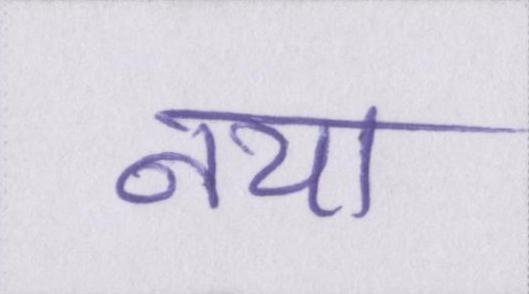 नया